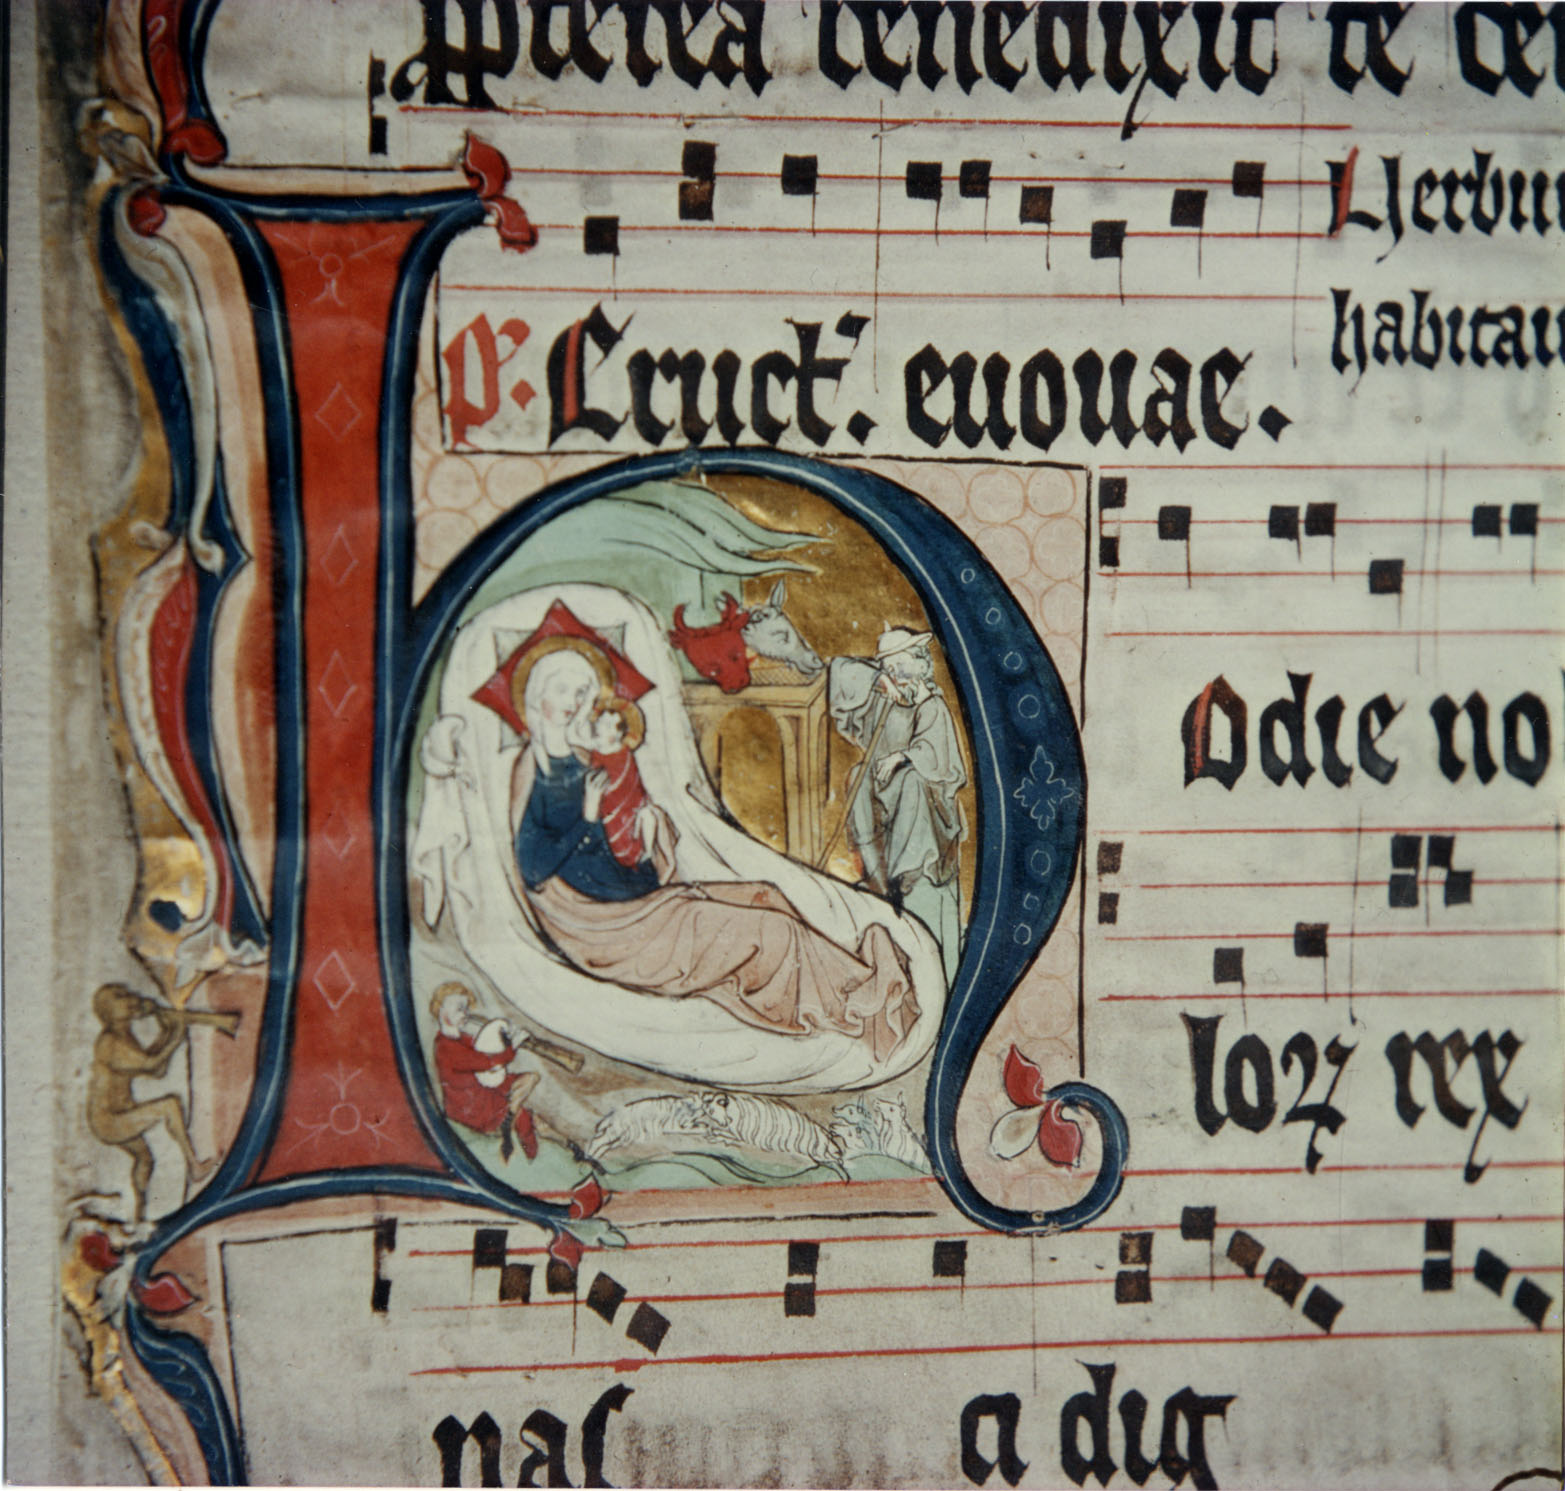 ppterea benedixit te de
Verbu
habitaui
ps. Eruct. euouae.
Hodie no
lorum rex
nas ci dig